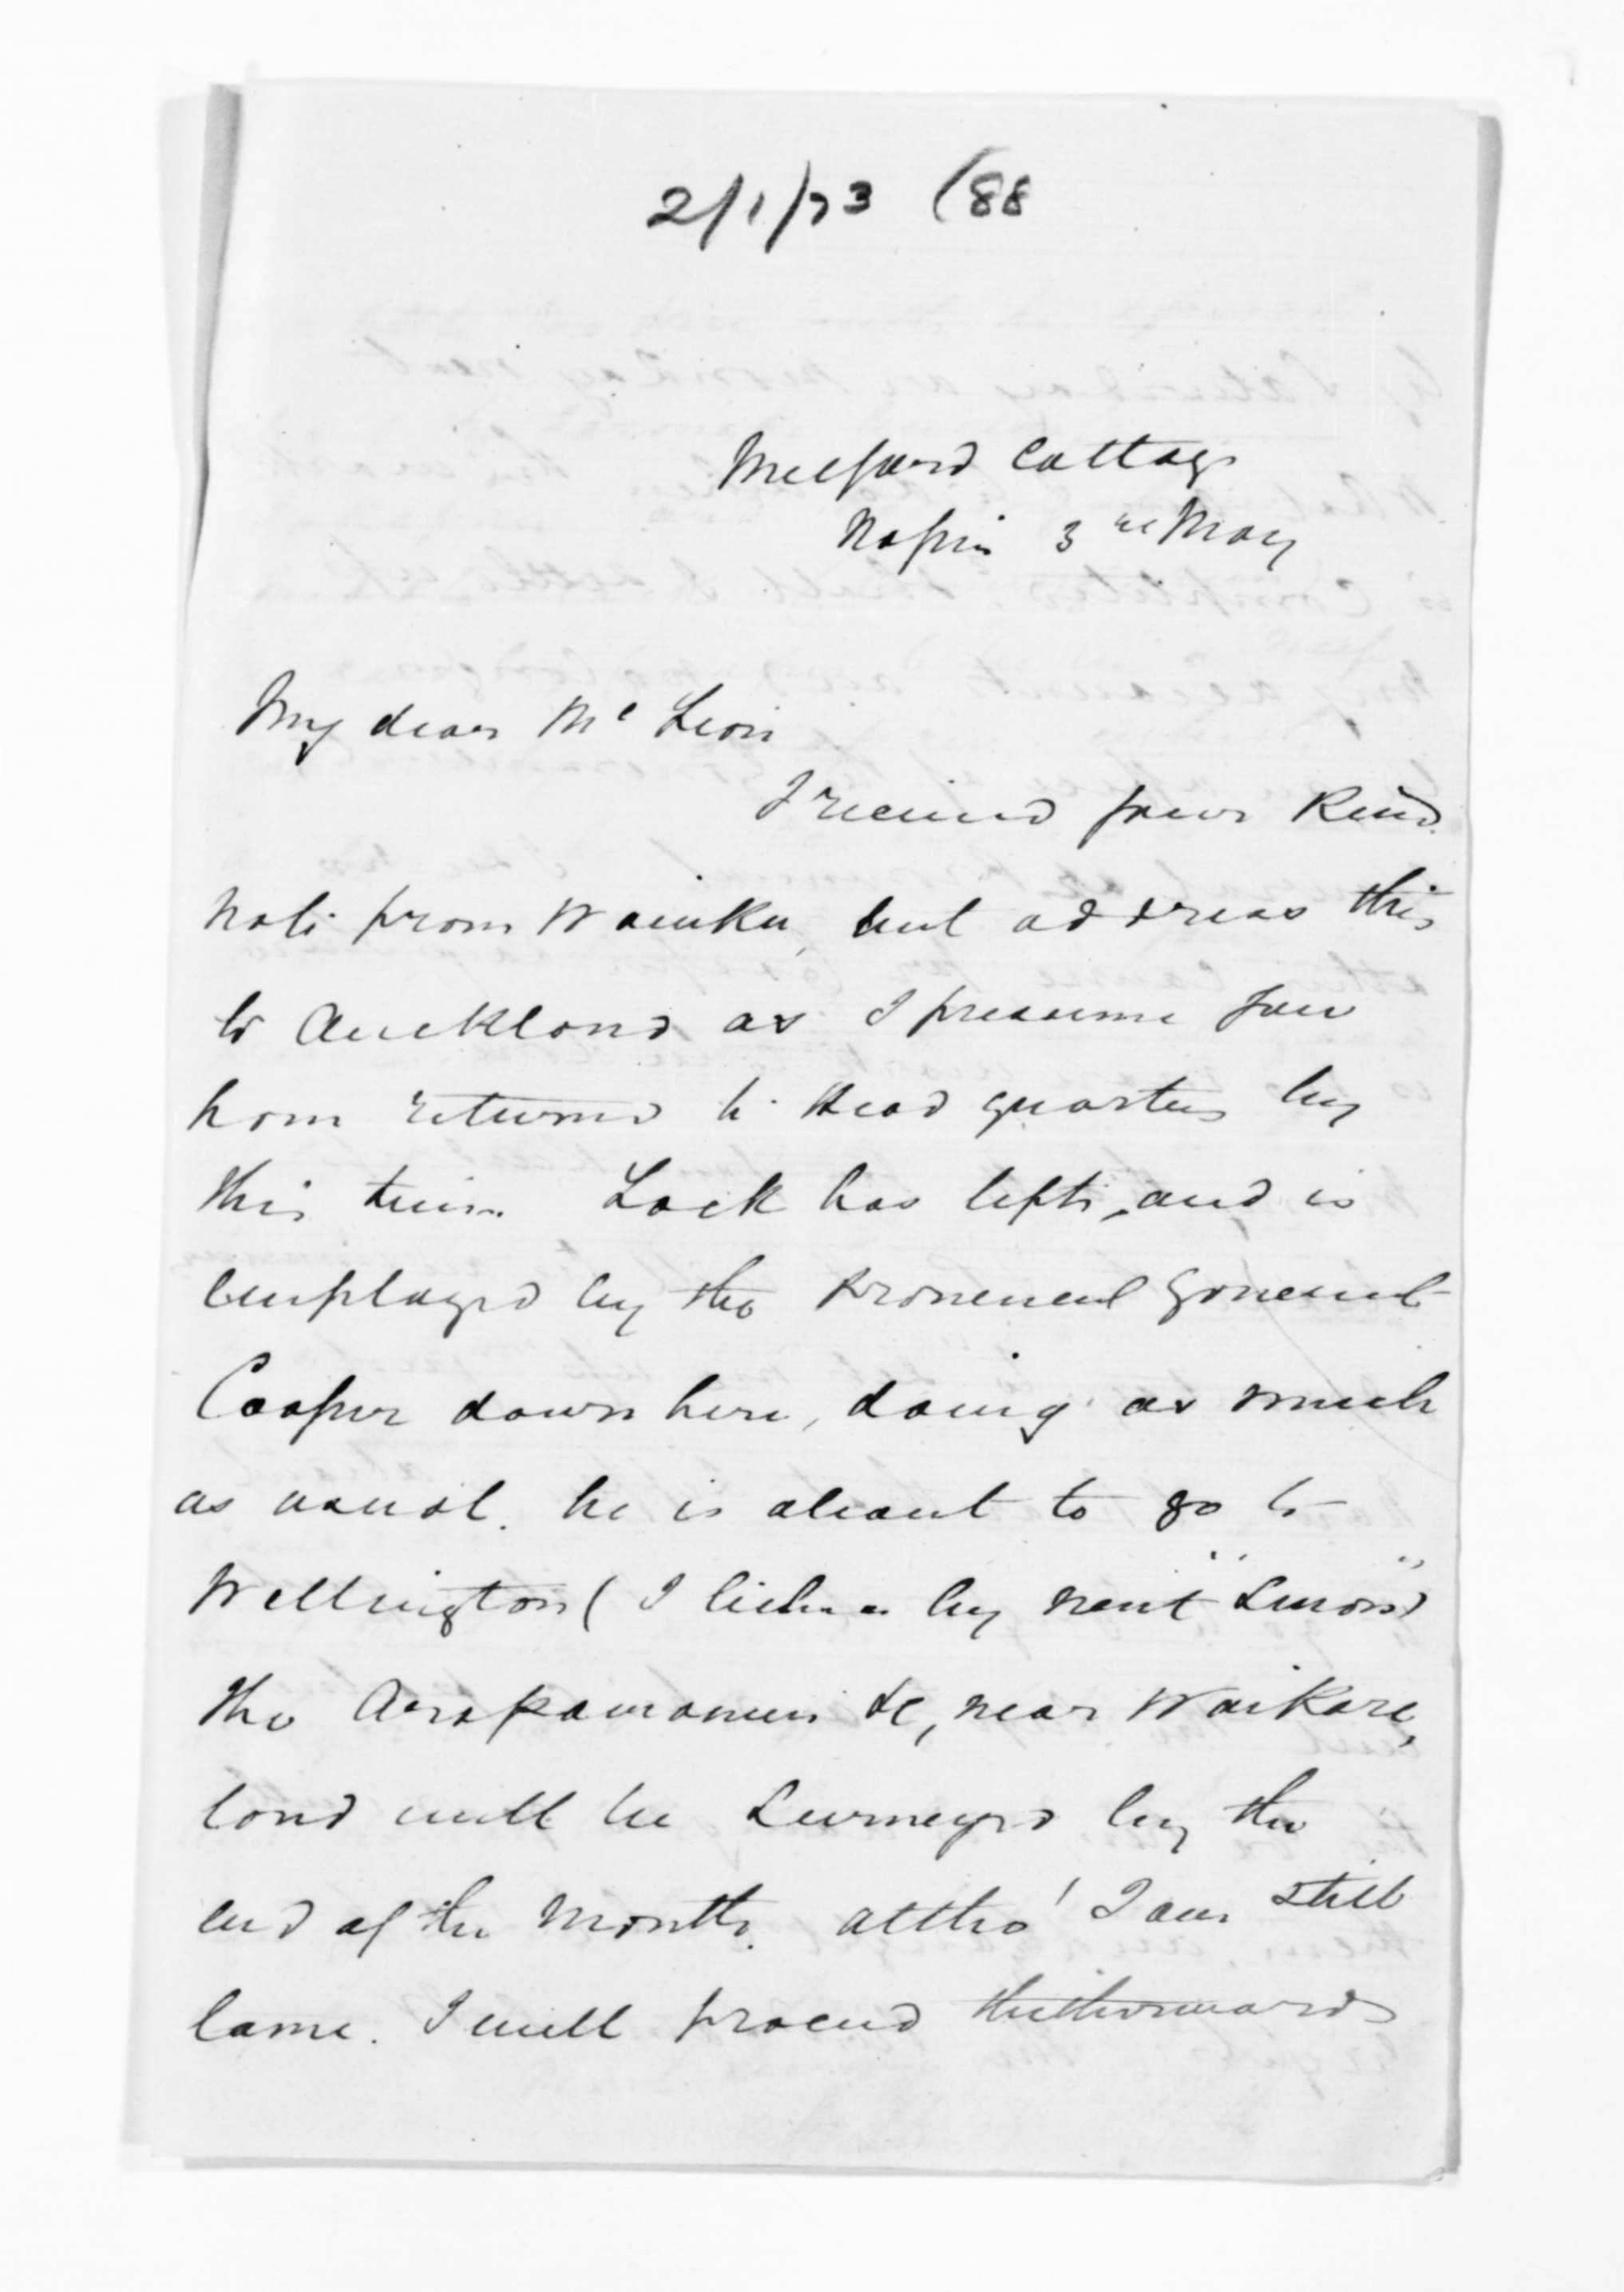 2/1/73 (88
Milford Cottage
Napier 3rd May
My dear McLean
I received your kind
note from Waiuku, but address this
to Auckland as I presume you
have returned to Head quarters by
this time. Lock has left, and is
employed by the Provincial Governmt
Cooper down here, doing as much
as usual. he is about to go to
Wellington ( I believe by next "Luna")
the &c, near Waikare,
land will be Surveyed by the
end of the Month. altho' I am still
lame. I will proceed thitherwards